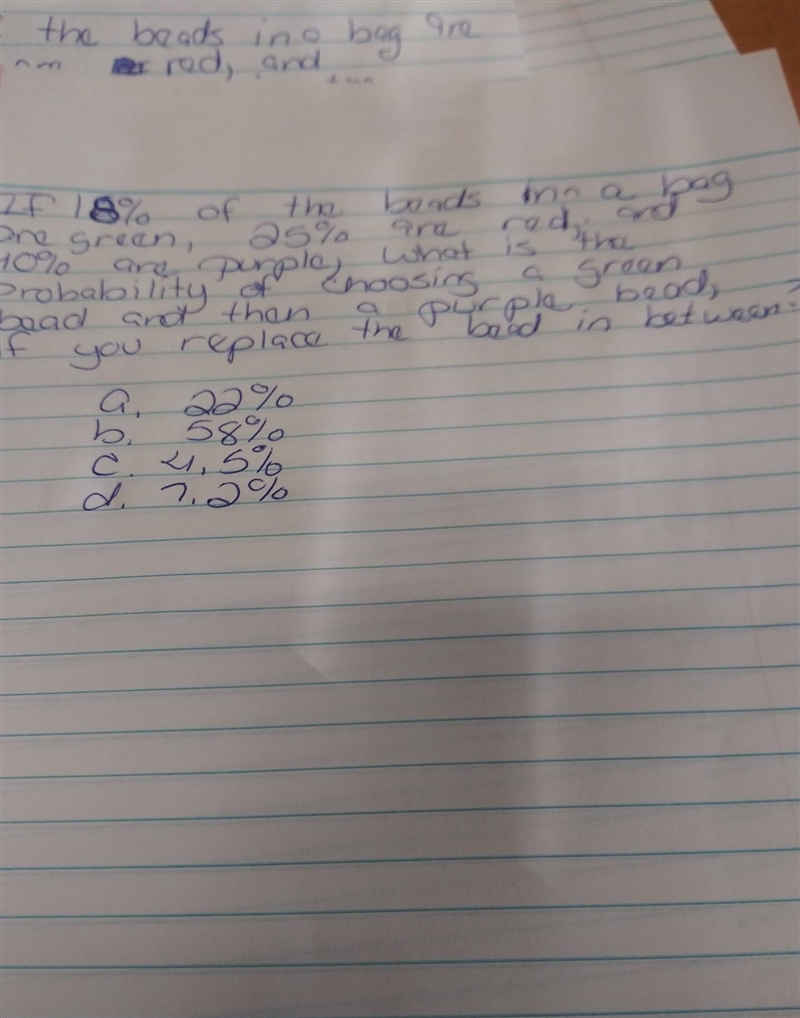 the beads in a bag are
red, and
If 18% of the beads in a bag
are green, 25% are red, and
40% are purple, what is the
probability of choosing a green
bead and then a purple bead,
if you replace the bead in between?
a. 22%
b. 58%
c. 4.5%
d. 7.2%